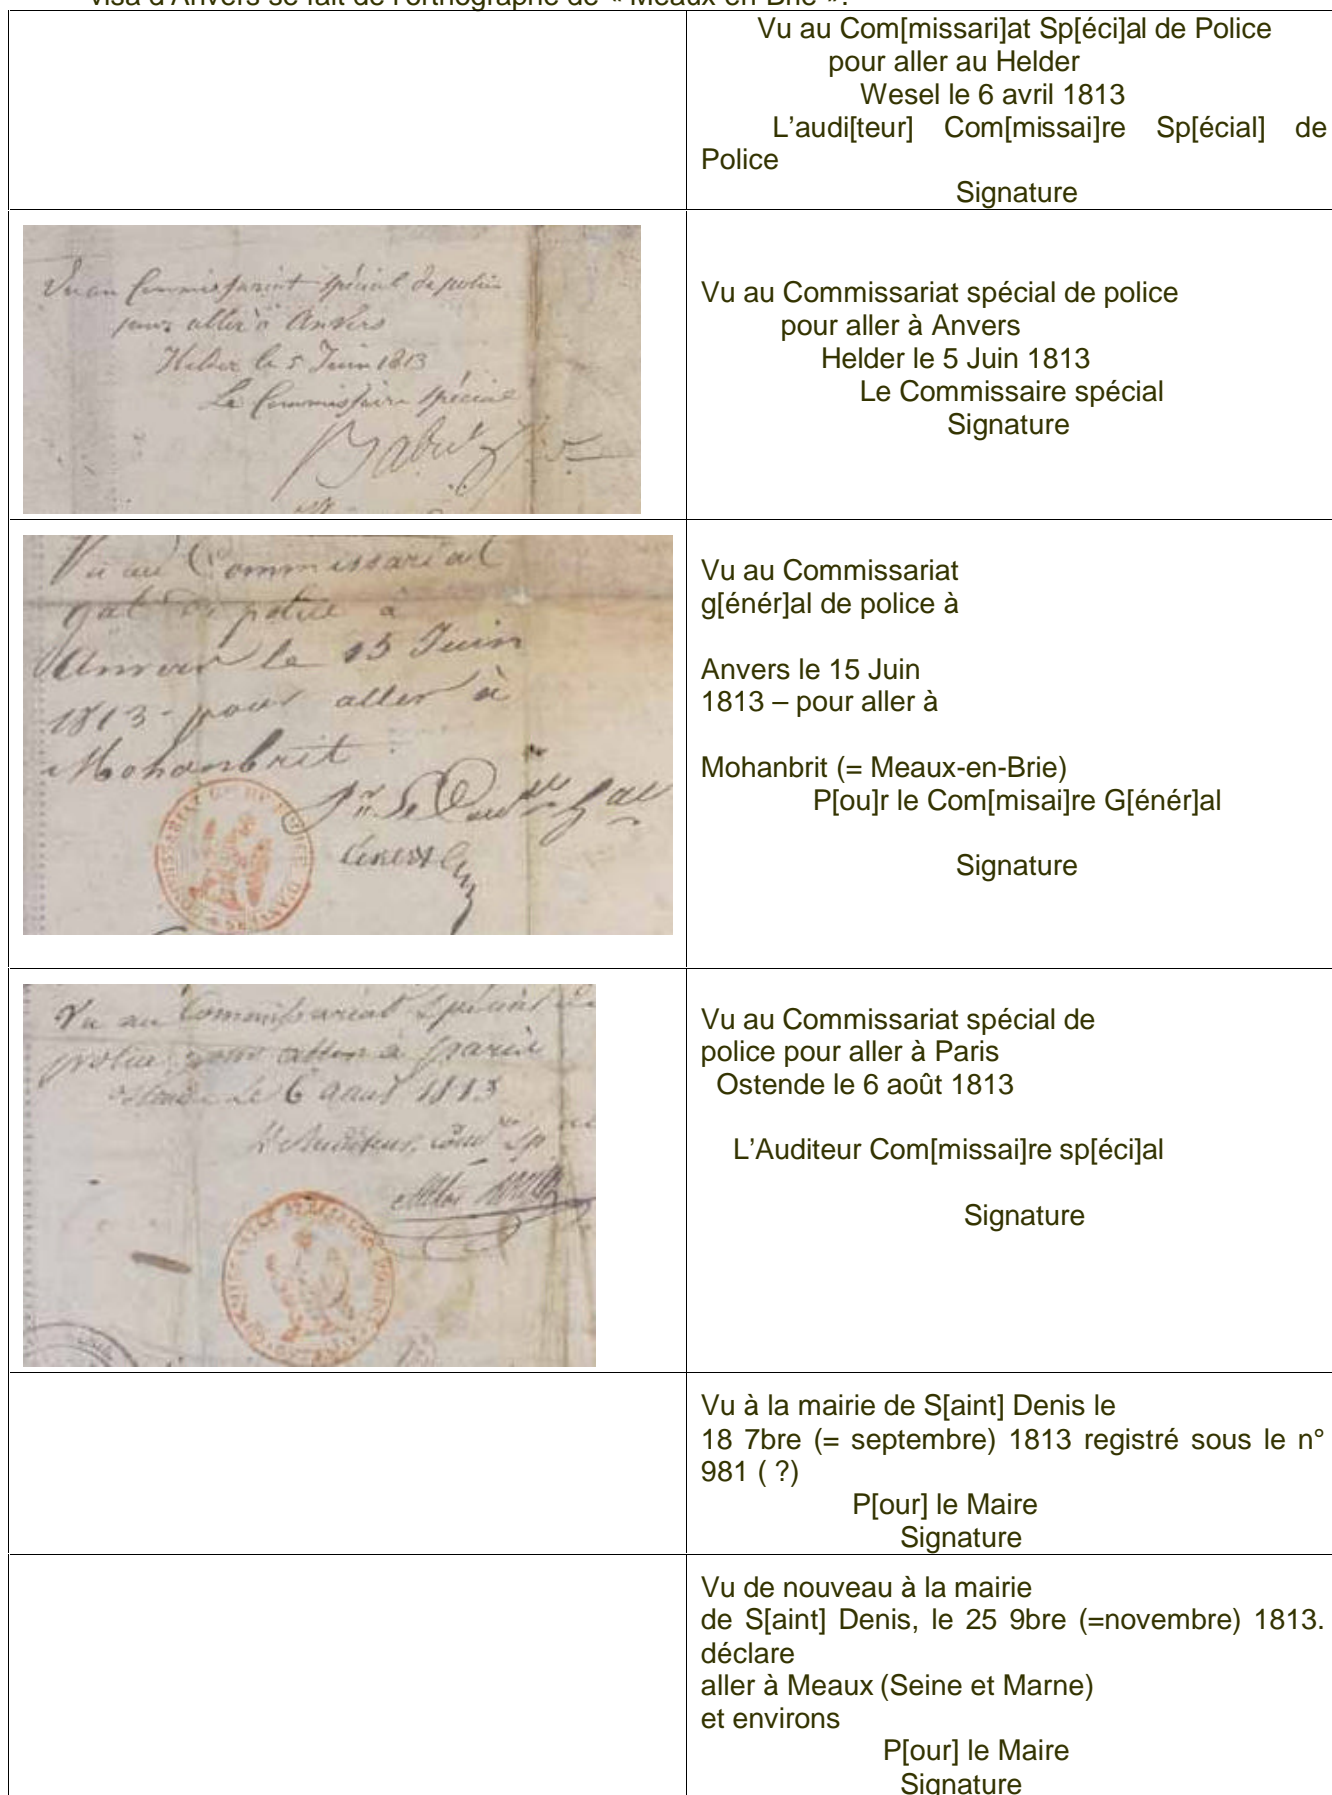 visa d'Anvers se fait de l'orthographe de « Meaux-en-Brie ».
Vu au Com[missari]at Sp[éci]al de Police
pour aller au Helder
Wesel le 6 avril 1813
L'audi[teur] Com[missai]re Sp[écial] de
Police
Signature
Vu au Commissariat spécial de police
pour aller à Anvers
Helder le 5 Juin 1813
Le Commissaire spécial
Vu au Commissariat spécial de police
pour aller à Anvers
Helder le 5 Juin 1813
Le Commissaire spécial
Signature
Vu au Commissariat
gal de police à
Anvers le 15 Juin
1813 - pour aller à
Mohanbrit
Pr Le Comre Gal
Vu au Commissariat
g[énér]al de police à
Anvers le 15 Juin
1813 – pour aller à
Mohanbrit (= Meaux-en-Brie)
P[ou]r le Com[misai]re G[énér]al
Signature
Vu au Commissariat spécial de
police pour aller à Paris
Ostende le 6 août 1813
L'Auditeur, Comre Spal
Vu au Commissariat spécial de
police pour aller à Paris
Ostende le 6 août 1813
L'Auditeur Com[missai]re sp[éci]al
Signature
Vu à la mairie de S[aint] Denis le
18 7bre (= septembre) 1813 registré sous le n°
981 ( ?)
P[our] le Maire
Signature
Vu de nouveau à la mairie
de S[aint] Denis, le 25 9bre (=novembre) 1813.
déclare
aller à Meaux (Seine et Marne)
et environs
P[our] le Maire
Signature